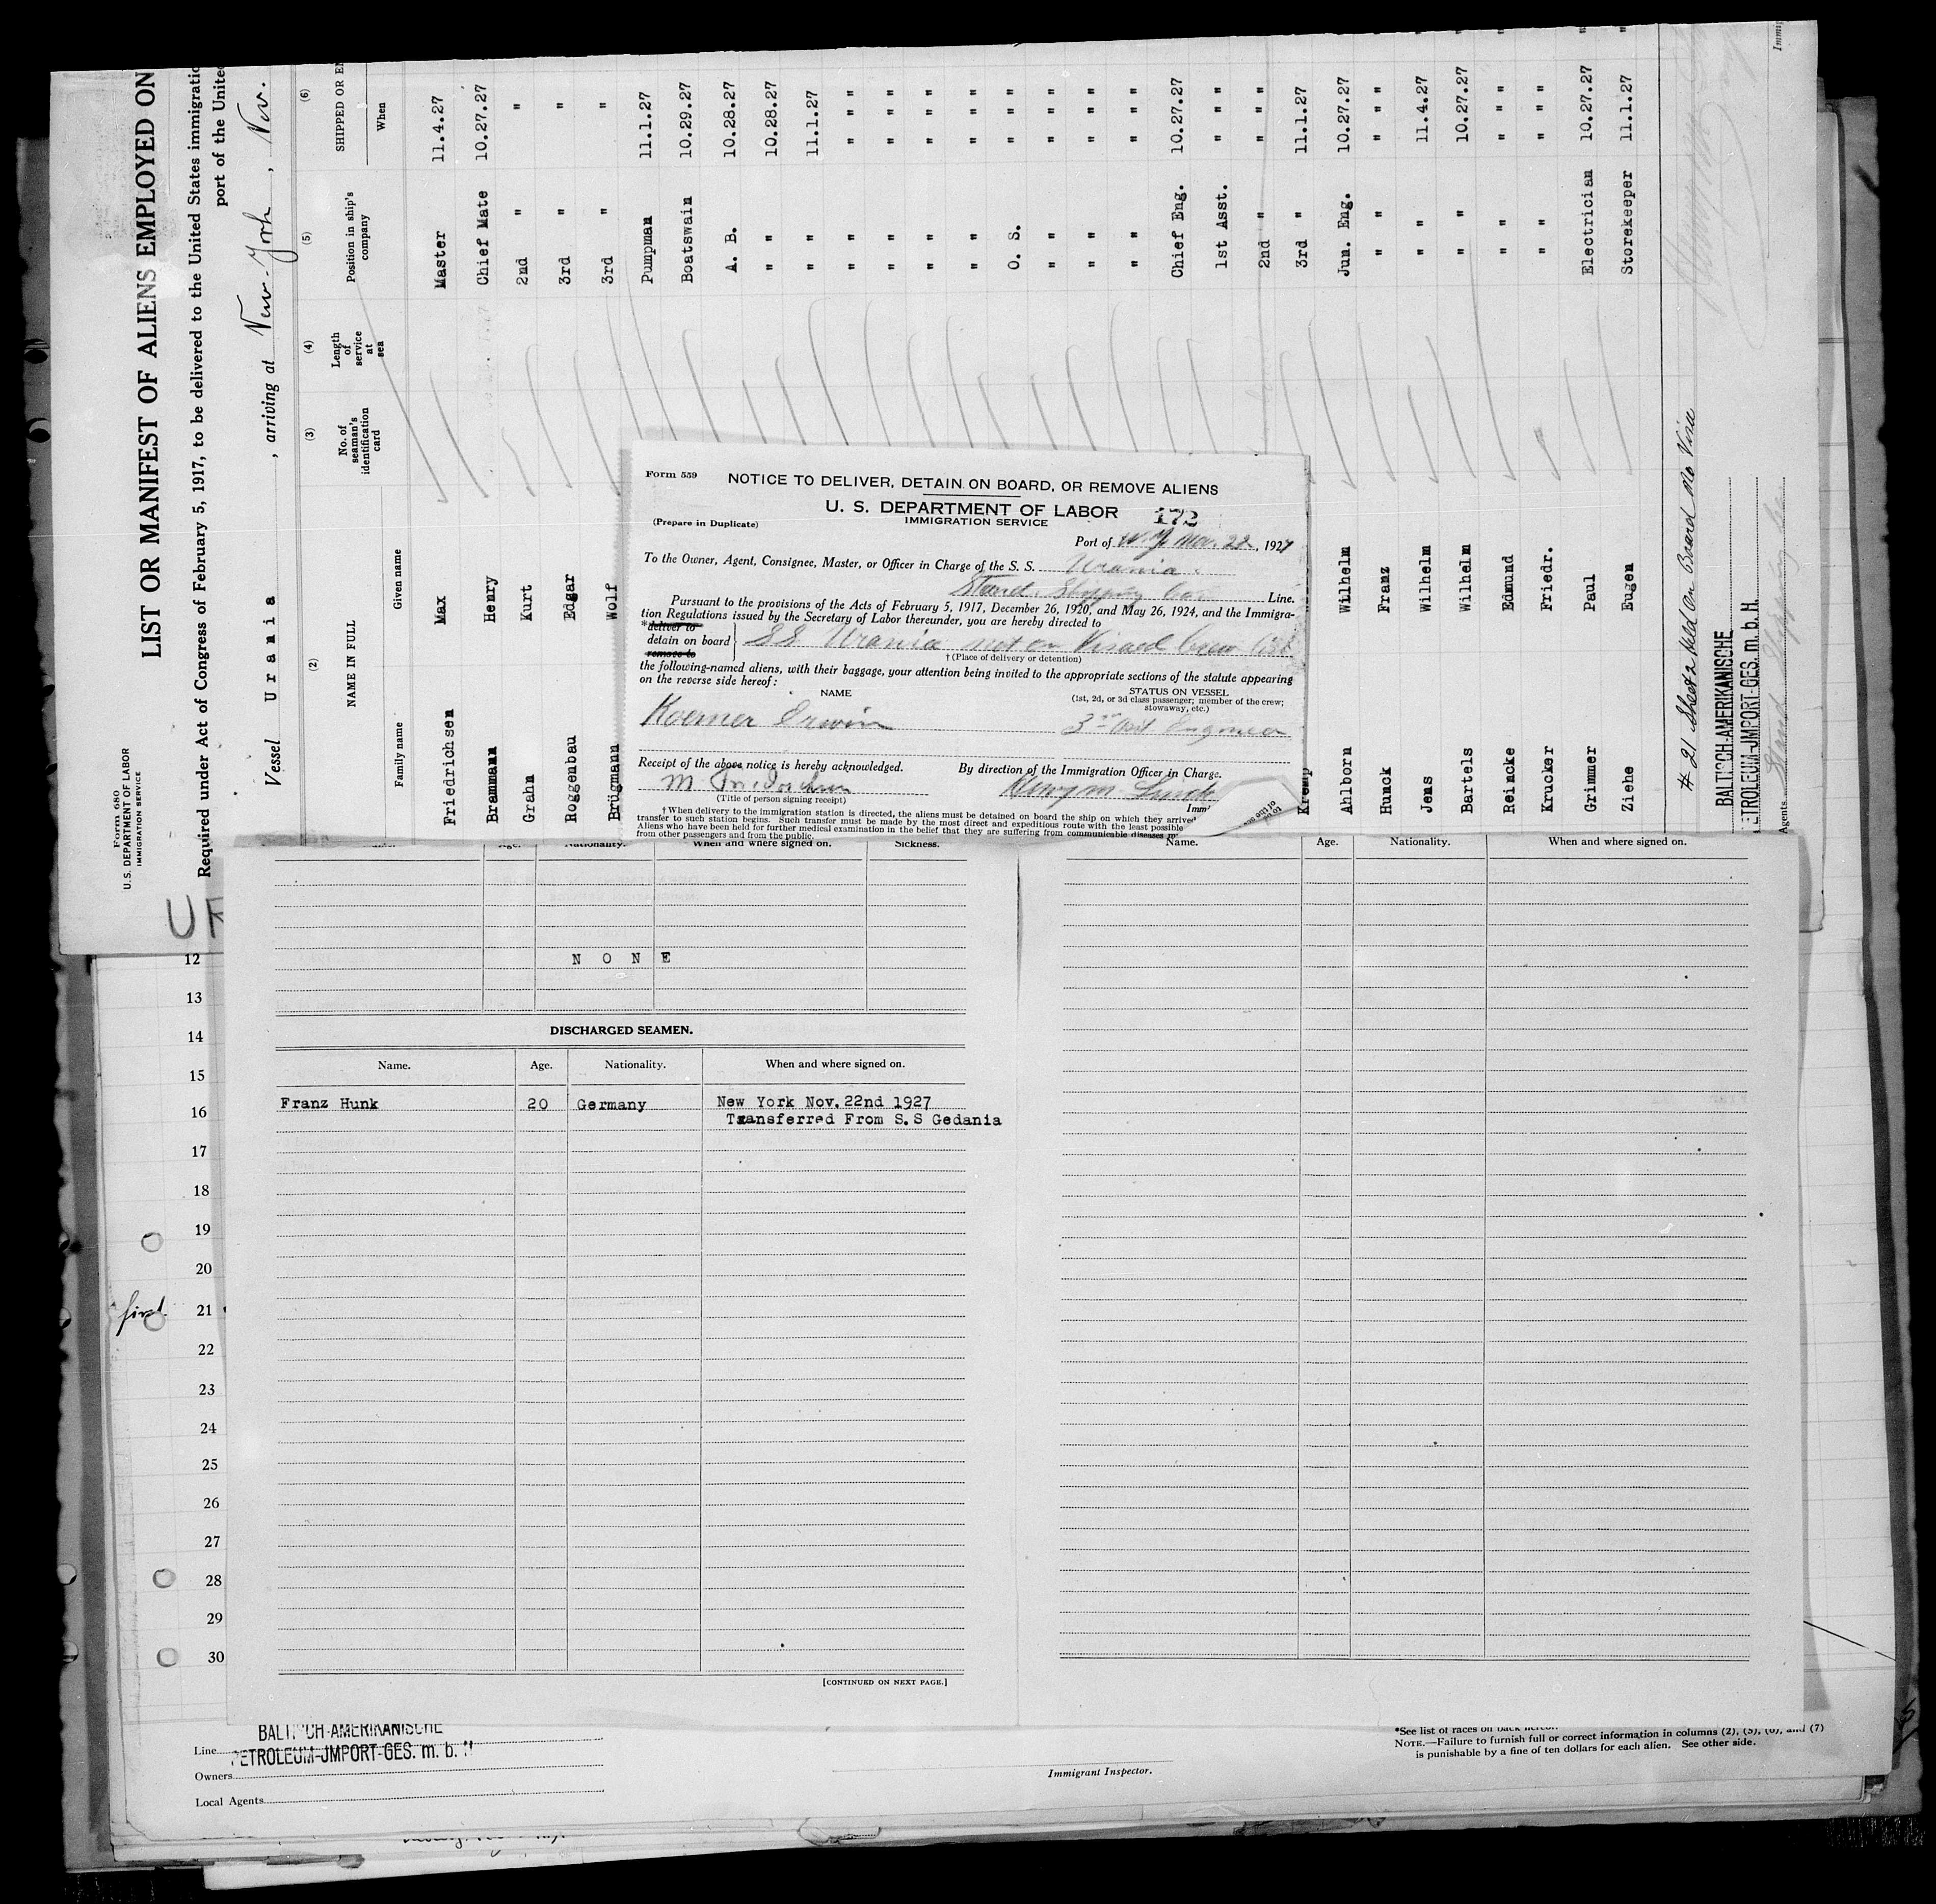 Form 680
U. S. DEPARTMENT OF LABOR
IMMIGRATION SERVICE
LIST OR MANIFEST OF ALIENS EMPLOYED ON
Required under Act of Congress of February 5, 1917, to be delivered to the United States immigratio
port of the United
Vessel Urania , arriving at New-York , Nov.
(2) (3) (4) (5) (6)
NAME IN FULL
Family name Given name
No. of seaman's identification card
Length of service at sea
Position in ship's company
SHIPPED OR EN
When
Friedrichsen Max Master 11.4.27
Brammann Henry Chief Mate 10.27.27
Grahn Kurt 2nd " "
Roggenbau Edgar 3rd " "
Brügmann Wolf 3rd " "
Pumpman 11.1.27
Boatswain 10.29.27
A. B. 10.28.27
" " 10.28.27
" " 11.1.27
" " " " "
" " " " "
" " " " "
" " " " "
O. S. " " "
" " " " "
" " " " "
" " " " "
Chief Eng. 10.27.27
1st Asst. " " "
2nd " " " "
Kremp 3rd " 11.1.27
Ahlborn Wilhelm Jun. Eng. 10.27.27
Hunck Franz " " " " "
Jens Wilhelm " " 11.4.27
Bartels Wilhelm " " 10.27.27
Reincke Edmund " " " " "
Krucker Friedr. " " " " "
Grimmer Paul Electrician 10.27.27
Ziehe Eugen Storekeeper 11.1.27
# 21 Sheet 2 Held on Board no Visa
BALTISCH-AMERIKANISCHE
PETROLEUM-JMPORT-GES. m. b. H.
Agents
Immig
Form 559
NOTICE TO DELIVER, DETAIN ON BOARD, OR REMOVE ALIENS
U. S. DEPARTMENT OF LABOR
IMMIGRATION SERVICE
172
(Prepare in Duplicate)
Port of N.Y. Nov. 22, 1927
To the Owner, Agent, Consignee, Master, or Officer in Charge of the S. S. Urania
Stand. Shipping Co. Line.
Pursuant to the provisions of the Acts of February 5, 1917, December 26, 1920, and May 26, 1924, and the Immigra-
tion Regulations issued by the Secretary of Labor thereunder, you are hereby directed to
*deliver to
detain on board
remove to
SS. Urania not on Visaed Crew list
† (Place of delivery or detention)
the following-named aliens, with their baggage, your attention being invited to the appropriate sections of the statute appearing
on the reverse side hereof:
NAME STATUS ON VESSEL
(1st, 2d, or 3d class passenger; member of the crew;
stowaway, etc.)
Koerner Erwin 3rd Asst Engineer
Receipt of the above notice is hereby acknowledged. By direction of the Immigration Officer in Charge.
M. Friedrichsen
(Title of person signing receipt) Imm
† When delivery to the immigration station is directed, the aliens must be detained on board the ship on which they arrived
transfer to such station begins. Such transfer must be made by the most direct and expeditious route with the least possible
Aliens who have been held for further medical examination in the belief that they are suffering from communicable diseases
from other passengers and from the public.
Age. Nationality. When and where signed on. Sickness.
NONE
DISCHARGED SEAMEN.
Name. Age. Nationality. When and where signed on.
Franz Hunk 20 Germany New York Nov. 22nd 1927
Transferred From S.S Gedania
[CONTINUED ON NEXT PAGE.]
Name. Age. Nationality. When and where signed on.
12
13
14
15
16
17
18
19
20
first 21
22
23
24
25
26
27
28
29
30
BALTISCH-AMERIKANISCHE
PETROLEUM-JMPORT-GES. m. b. H
Line
Owners
Local Agents
Immigrant Inspector.
*See list of races on back hereof.
NOTE.—Failure to furnish full or correct information in columns (2), (5), (6), and (7)
is punishable by a fine of ten dollars for each alien. See other side.